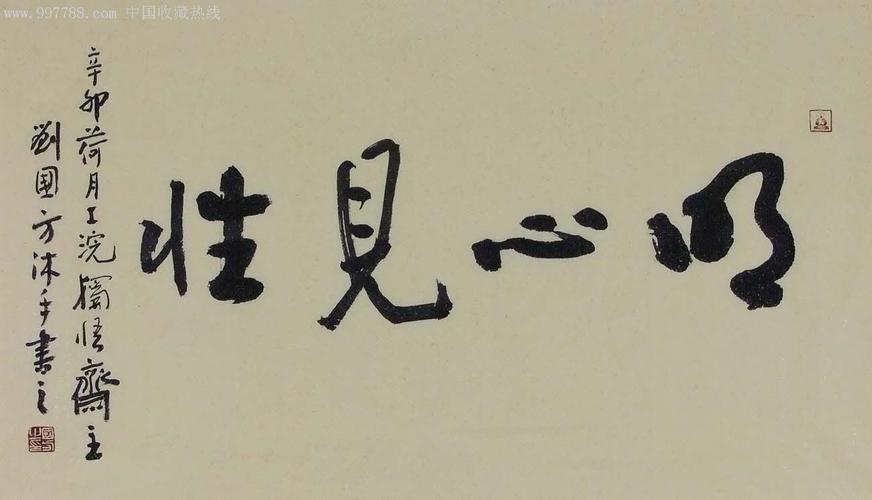 www.997788.com 中国收藏热线
明心見性
辛卯荷月工浣獨悟齋主
劉國方沐手書之